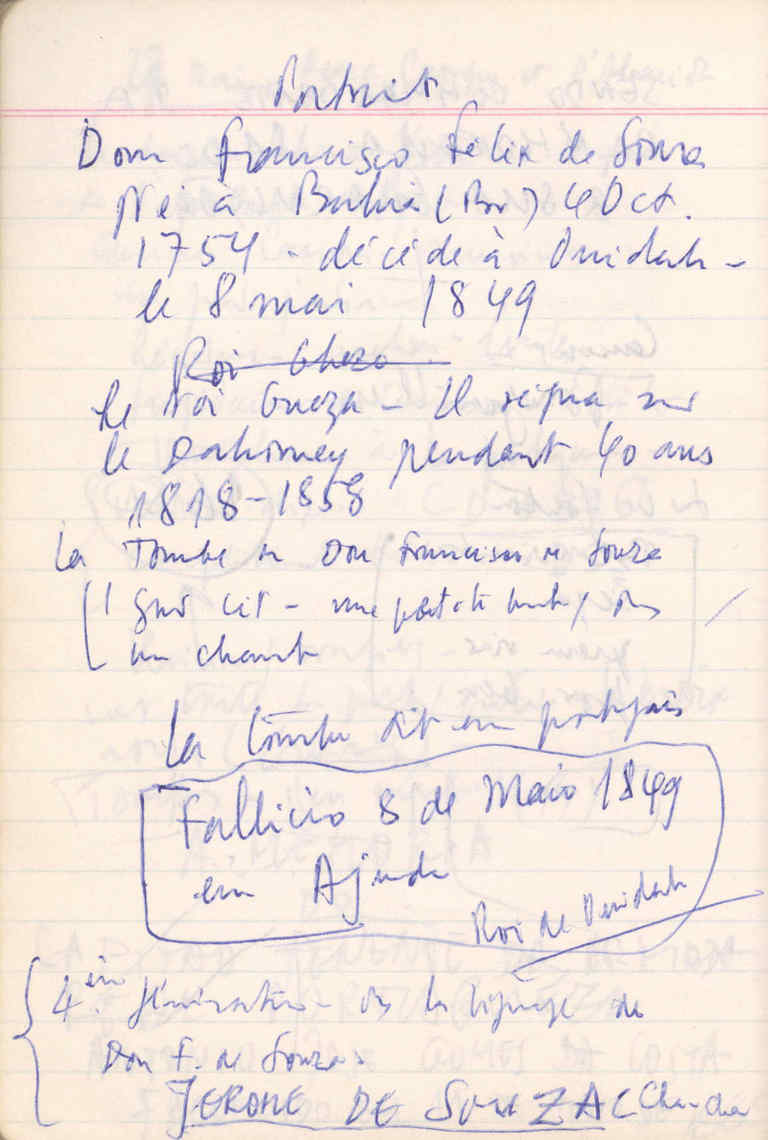 Portrait
Dom Francisco Felix de Souza
Né à Bahia (Br) 4 Oct.
1754 - décédé à Ouidah -
le 8 mai 1849
Roi Ghezo
Le roi Gueza - Il régna sur
le Dahomey pendant 40 ans
1818-1858
La Tombe de Don Francisco de Souza
une
un
La tombe dit en portugais
Fallicio 8 de Maio 1849
em Ajuda
Roi de Ouidah
4ième génération - de la lignée de
Don F. de Souza -
JEROME DE SOUZA (Chacha